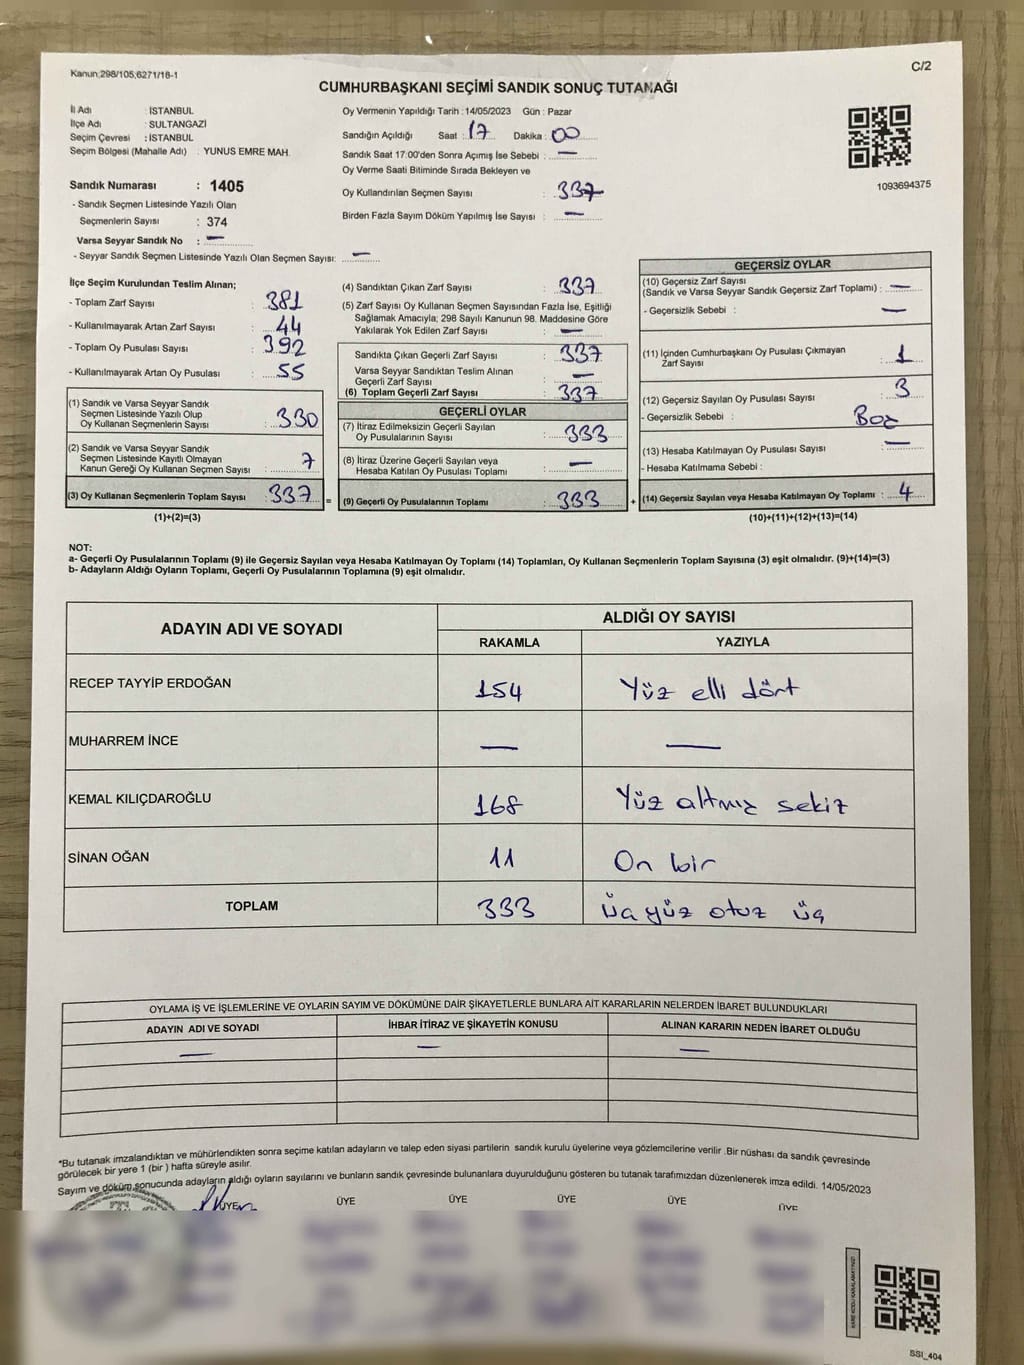 Kanun;298/105;6271/18-1
C/2
CUMHURBAŞKANI SEÇİMİ SANDIK SONUÇ TUTANAĞI
İl Adı : İSTANBUL
İlçe Adı : SULTANGAZİ
Seçim Çevresi : İSTANBUL
Seçim Bölgesi (Mahalle Adı) : YUNUS EMRE MAH.
Oy Vermenin Yapıldığı Tarih : 14/05/2023 Gün : Pazar
Sandığın Açıldığı Saat : 17 Dakika : 00
Sandık Saat 17:00'den Sonra Açımış İse Sebebi : —
Oy Verme Saati Bitiminde Sırada Bekleyen ve
Oy Kullandırılan Seçmen Sayısı : 337
Birden Fazla Sayım Döküm Yapılmış İse Sayısı : —
1093694375
Sandık Numarası : 1405
- Sandık Seçmen Listesinde Yazılı Olan
Seçmenlerin Sayısı : 374
Varsa Seyyar Sandık No : —
- Seyyar Sandık Seçmen Listesinde Yazılı Olan Seçmen Sayısı: —
İlçe Seçim Kurulundan Teslim Alınan;
- Toplam Zarf Sayısı : 381
- Kullanılmayarak Artan Zarf Sayısı : 44
- Toplam Oy Pusulası Sayısı : 392
- Kullanılmayarak Artan Oy Pusulası : 55
(1) Sandık ve Varsa Seyyar Sandık
Seçmen Listesinde Yazılı Olup
Oy Kullanan Seçmenlerin Sayısı : 330
(2) Sandık ve Varsa Seyyar Sandık
Seçmen Listesinde Kayıtlı Olmayan
Kanun Gereği Oy Kullanan Seçmen Sayısı : 7
(3) Oy Kullanan Seçmenlerin Toplam Sayısı : 337
(1)+(2)=(3)
(4) Sandıktan Çıkan Zarf Sayısı : 337
(5) Zarf Sayısı Oy Kullanan Seçmen Sayısından Fazla İse, Eşitliği
Sağlamak Amacıyla; 298 Sayılı Kanunun 98. Maddesine Göre
Yakılarak Yok Edilen Zarf Sayısı : —
Sandıkta Çıkan Geçerli Zarf Sayısı : 337
Varsa Seyyar Sandıktan Teslim Alınan
Geçerli Zarf Sayısı : —
(6) Toplam Geçerli Zarf Sayısı : 337
GEÇERLİ OYLAR
(7) İtiraz Edilmeksizin Geçerli Sayılan
Oy Pusulalarının Sayısı : 333
(8) İtiraz Üzerine Geçerli Sayılan veya
Hesaba Katılan Oy Pusulası Toplamı : —
= (9) Geçerli Oy Pusulalarının Toplamı : 333
GEÇERSİZ OYLAR
(10) Geçersiz Zarf Sayısı
(Sandık ve Varsa Seyyar Sandık Geçersiz Zarf Toplamı) : —
- Geçersizlik Sebebi : —
(11) İçinden Cumhurbaşkanı Oy Pusulası Çıkmayan
Zarf Sayısı : 1
(12) Geçersiz Sayılan Oy Pusulası Sayısı : 3
- Geçersizlik Sebebi : Boz
(13) Hesaba Katılmayan Oy Pusulası Sayısı : —
- Hesaba Katılmama Sebebi :
+ (14) Geçersiz Sayılan veya Hesaba Katılmayan Oy Toplamı : 4
(10)+(11)+(12)+(13)=(14)
NOT:
a- Geçerli Oy Pusulalarının Toplamı (9) ile Geçersiz Sayılan veya Hesaba Katılmayan Oy Toplamı (14) Toplamları, Oy Kullanan Seçmenlerin Toplam Sayısına (3) eşit olmalıdır. (9)+(14)=(3)
b- Adayların Aldığı Oyların Toplamı, Geçerli Oy Pusulalarının Toplamına (9) eşit olmalıdır.
ADAYIN ADI VE SOYADI ALDIĞI OY SAYISI
RAKAMLA YAZIYLA
RECEP TAYYİP ERDOĞAN 154 Yüz elli dört
MUHARREM İNCE — —
KEMAL KILIÇDAROĞLU 168 Yüz altmız sekiz
SİNAN OĞAN 11 On bir
TOPLAM 333 üç yüz otuz üç
OYLAMA İŞ VE İŞLEMLERİNE VE OYLARIN SAYIM VE DÖKÜMÜNE DAİR ŞİKAYETLERLE BUNLARA AİT KARARLARIN NELERDEN İBARET BULUNDUKLARI
ADAYIN ADI VE SOYADI İHBAR İTİRAZ VE ŞİKAYETİN KONUSU ALINAN KARARIN NEDEN İBARET OLDUĞU
— — —
*Bu tutanak imzalandıktan ve mühürlendikten sonra seçime katılan adayların ve talep eden siyasi partilerin sandık kurulu üyelerine veya gözlemcilerine verilir .Bir nüshası da sandık çevresinde
görülecek bir yere 1 (bir ) hafta süreyle asılır.
Sayım ve döküm sonucunda adayların aldığı oyların sayılarını ve bunların sandık çevresinde bulunanlara duyurulduğunu gösteren bu tutanak tarafımızdan düzenlenerek imza edildi. 14/05/2023
ÜYE ÜYE ÜYE ÜYE ÜYE ÜYE
SSI_404